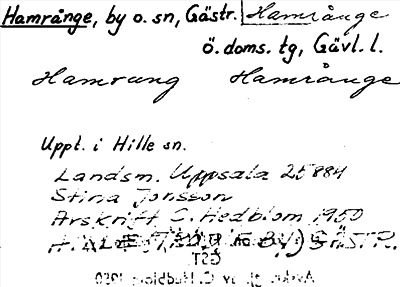 Hamrånge, by o. sn, Gästr. Hamrånge
Ö. doms. tg, Gävl. l.
Hamrung Hamrånge
Uppt. i Hille sn.
Landsm. Uppsala 25884
Stina Jonsson
Avskrift C. Hedblom 1950
GÄSTR.